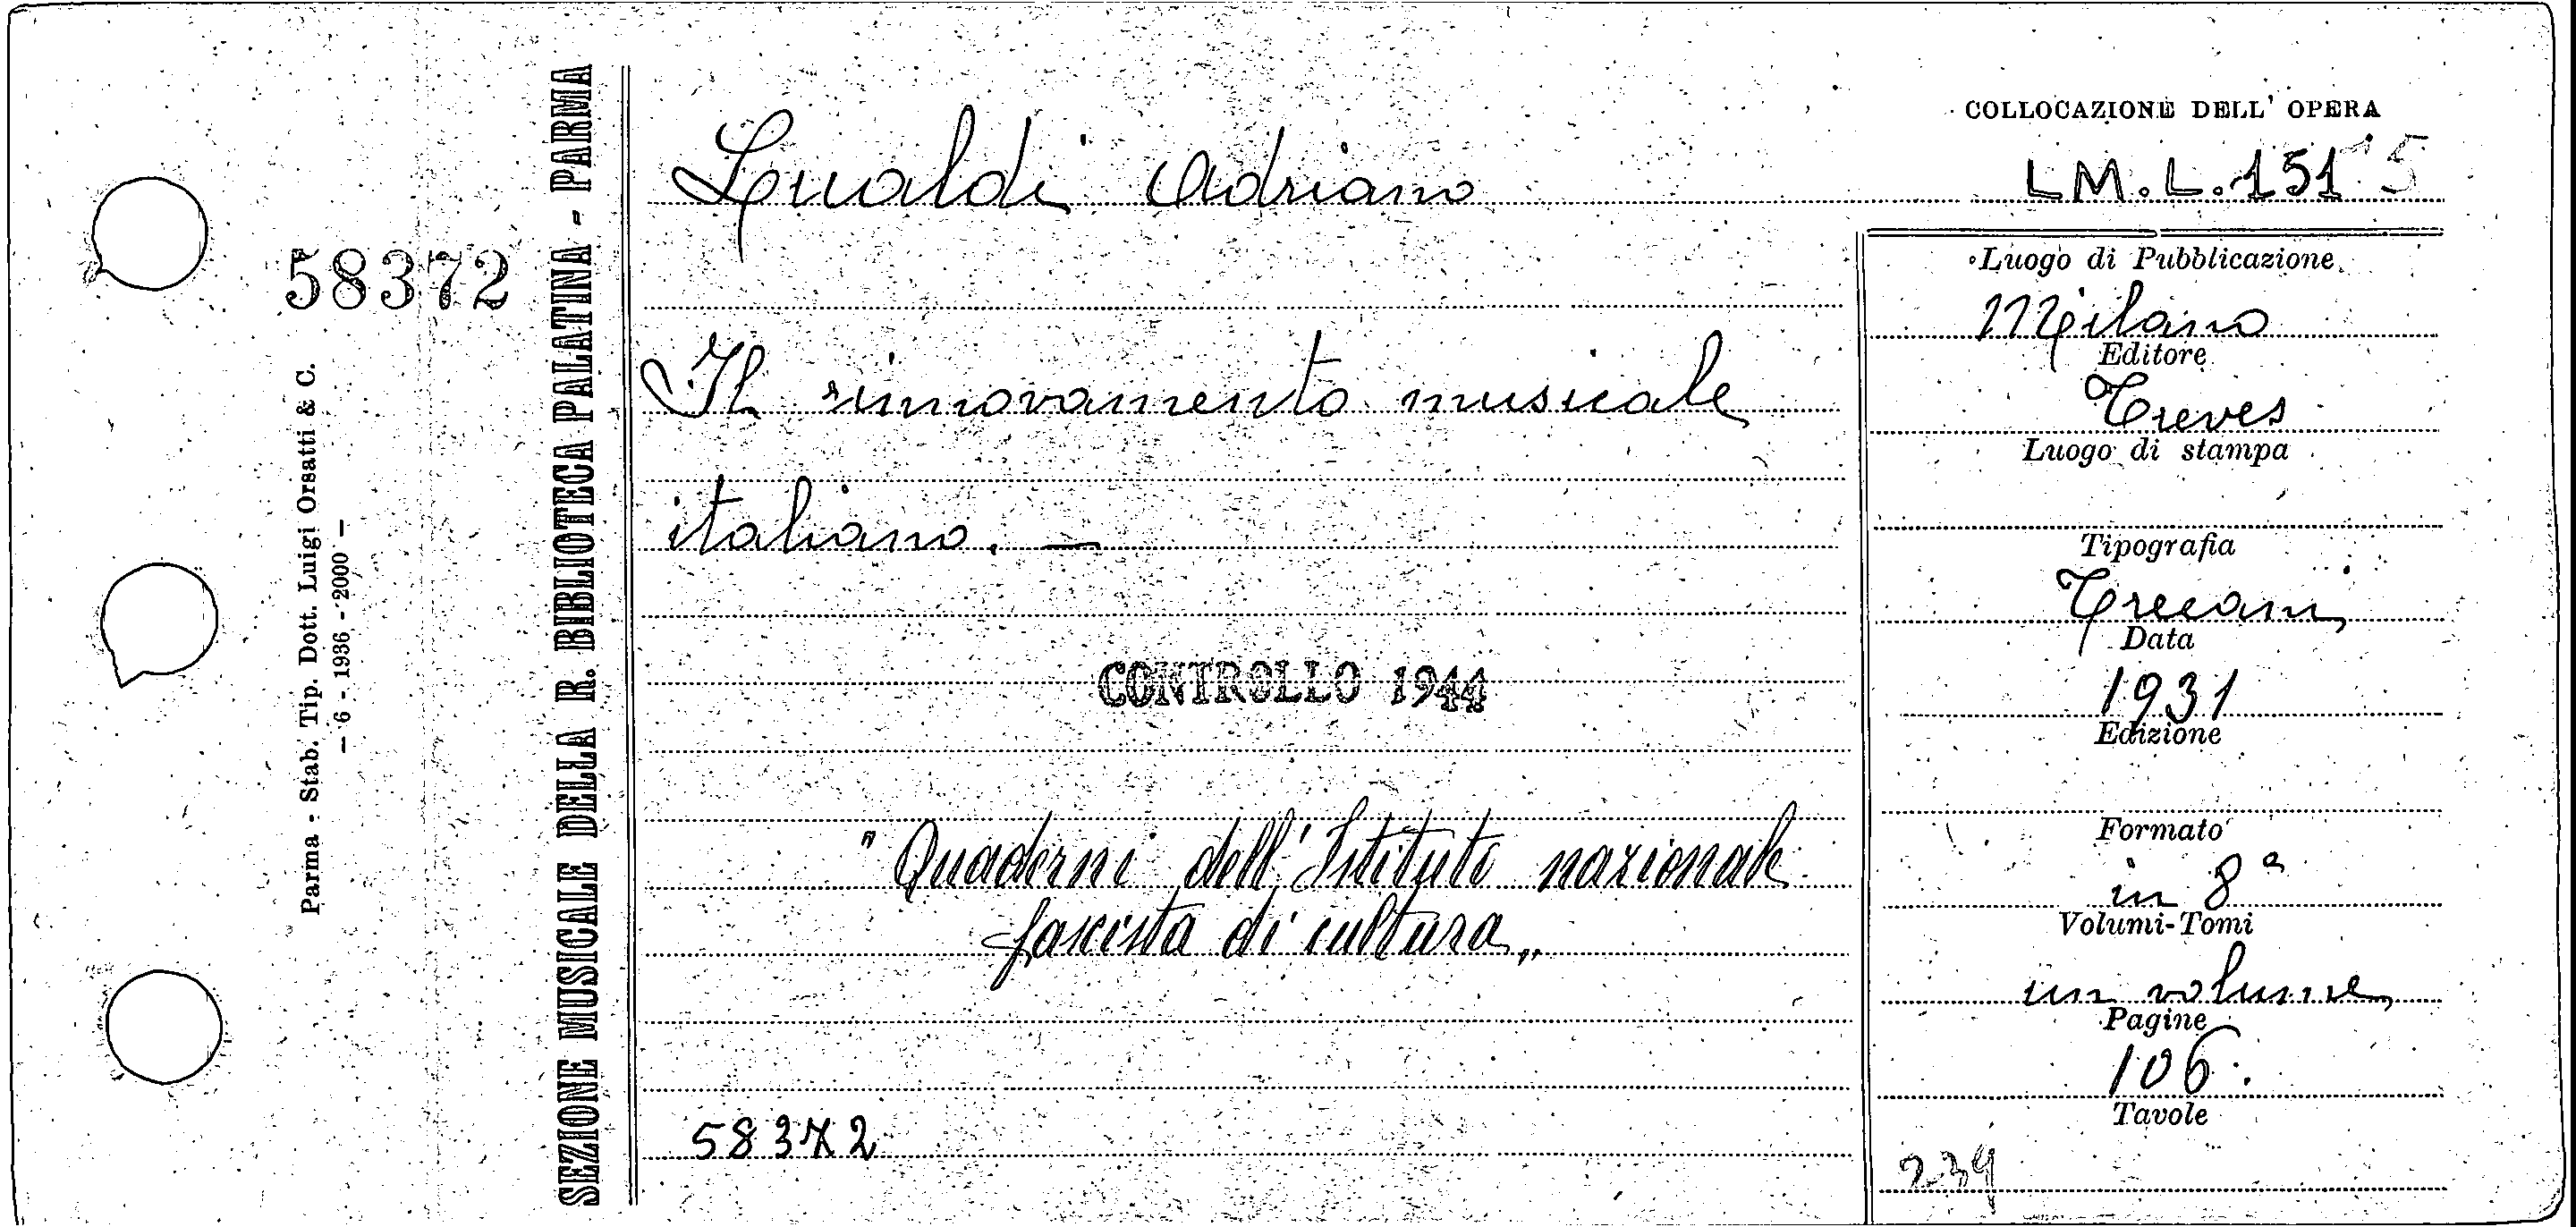 58372
Parma - Stab. Tip. Dott. Luigi Orsatti & C.
— 6 - 1936 - 2000 —
SEZIONE MUSICALE DELLA R. BIBLIOTECA PALATINA - PARMA
Lualdi Adriano
Il rinnovamento musicale
italiano. —
CONTROLLO 1944
" Quaderni dell' Istituto nazionale
fascista di cultura „
58372
COLLOCAZIONE DELL' OPERA
LM.L.151 5
Luogo di Pubblicazione
Milano
Editore
Treves
Luogo di stampa
Tipografia
Treccani
Data
1931
Edizione
Formato
in 8°
Volumi-Tomi
un volume
Pagine
106.
Tavole
239